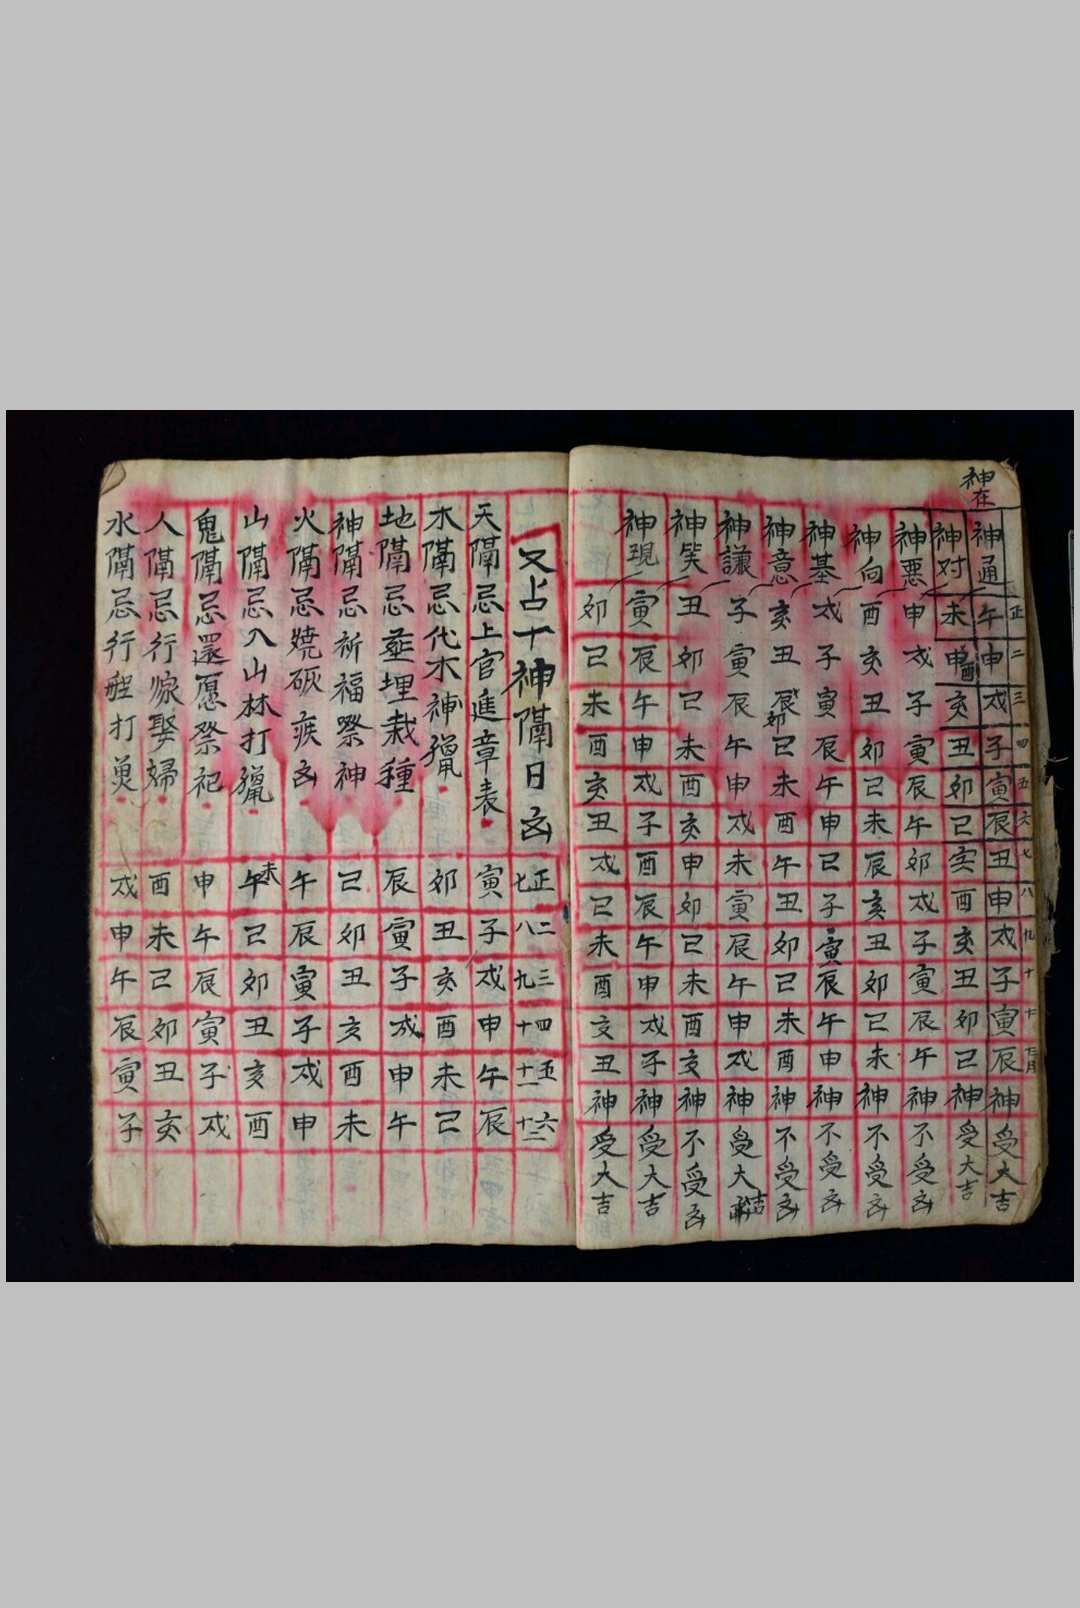 神在
正二三四五六七八九十十一十二月
神通午申戌子寅辰丑申戌子寅辰神受大吉
神对未申酉亥丑卯巳亥酉亥丑卯巳神受大吉
神悪申戌子寅辰午卯戌子寅辰午神不受凶
神向酉亥丑卯巳未辰亥丑卯巳未神不受凶
神基戌子寅辰午申巳子寅辰午申神不受凶
神意亥丑辰卯巳未酉午丑卯巳未酉神不受凶
神謙子寅辰午申戌未寅辰午申戌神受大吉
神笑丑卯巳未酉亥申卯巳未酉亥神不受凶
神現寅辰午申戌子酉辰午申戌子神受大吉
卯巳未酉亥丑戌巳未酉亥丑神受大吉
又占十神隔日凶
正二三四五六
七八九十十一十二
天隔忌上官進章表寅子戌申午辰
木隔忌代木神獵卯丑亥酉未巳
地隔忌葬埋栽種辰寅子戌申午
神隔忌祈福祭神巳卯丑亥酉未
火隔忌燒砍疾凶午辰寅子戌申
山隔忌入山林打獵午未巳卯丑亥酉
鬼隔忌還愿祭祀申午辰寅子戌
人隔忌行嫁娶婦酉未巳卯丑亥
水隔忌行船打魚戌申午辰寅子